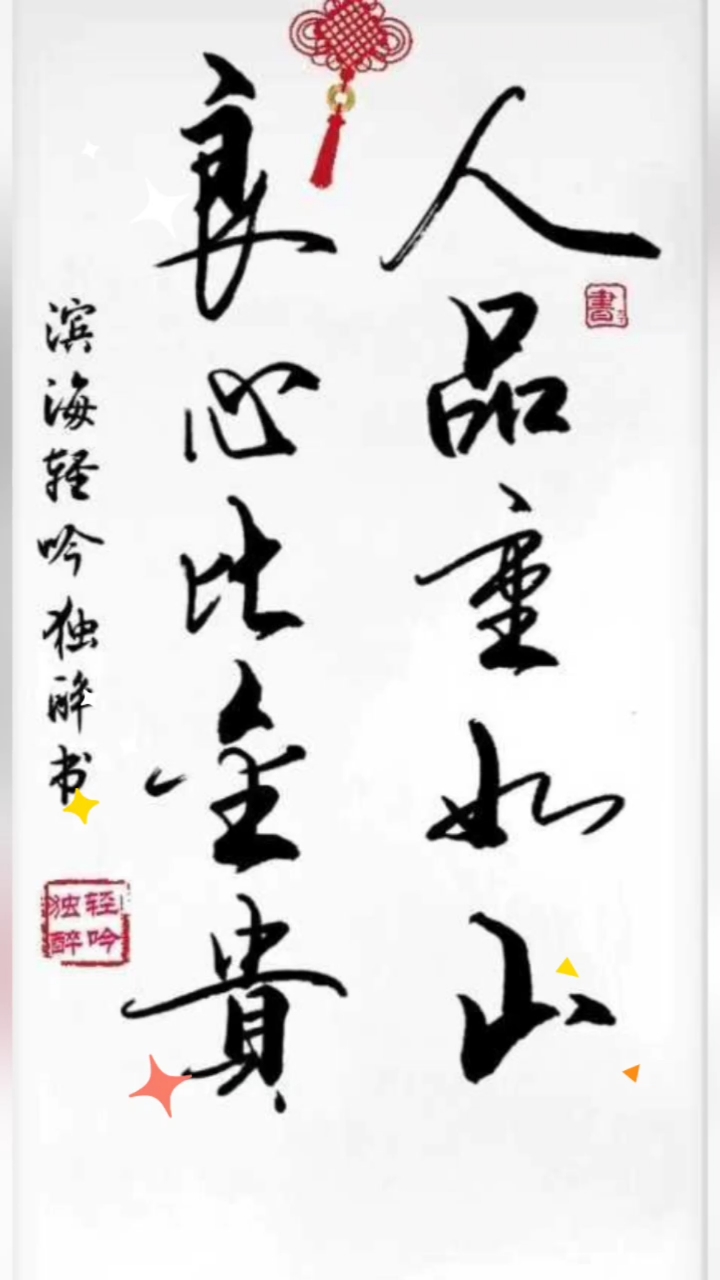 人品重如山
書
良心比金貴
滨海轻吟独醉书
轻吟
独醉